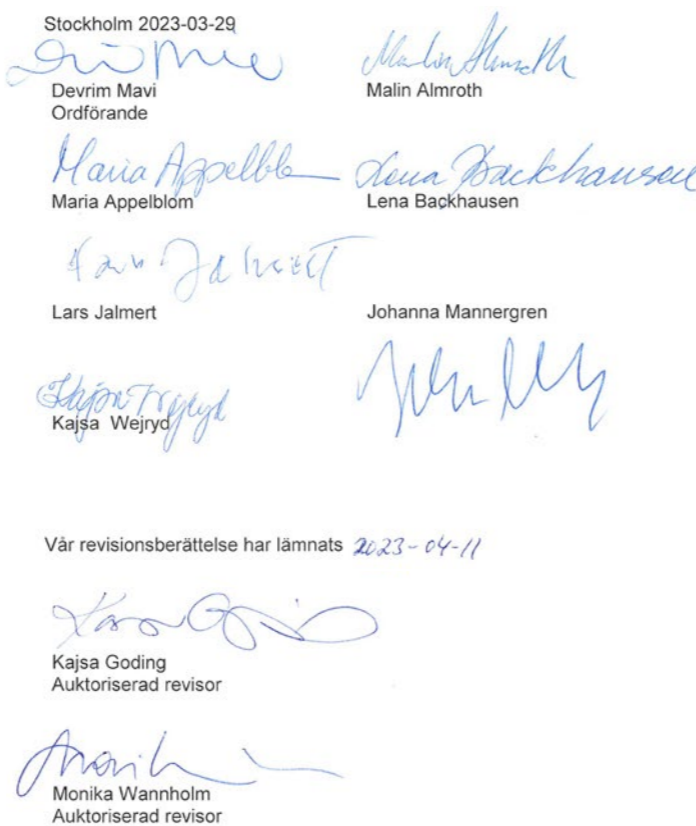 Stockholm 2023-03-29
Devrim Mavi
Ordförande
Malin Almroth
Malin Almroth
Maria Appelblom
Maria Appelblom
Lena Backhausen
Lena Backhausen
Jalmert
Lars Jalmert
Johanna Mannergren
Kajsa Wejryd
Vår revisionsberättelse har lämnats 2023-04-11
Kajsa Goding
Auktoriserad revisor
Monika Wannholm
Auktoriserad revisor